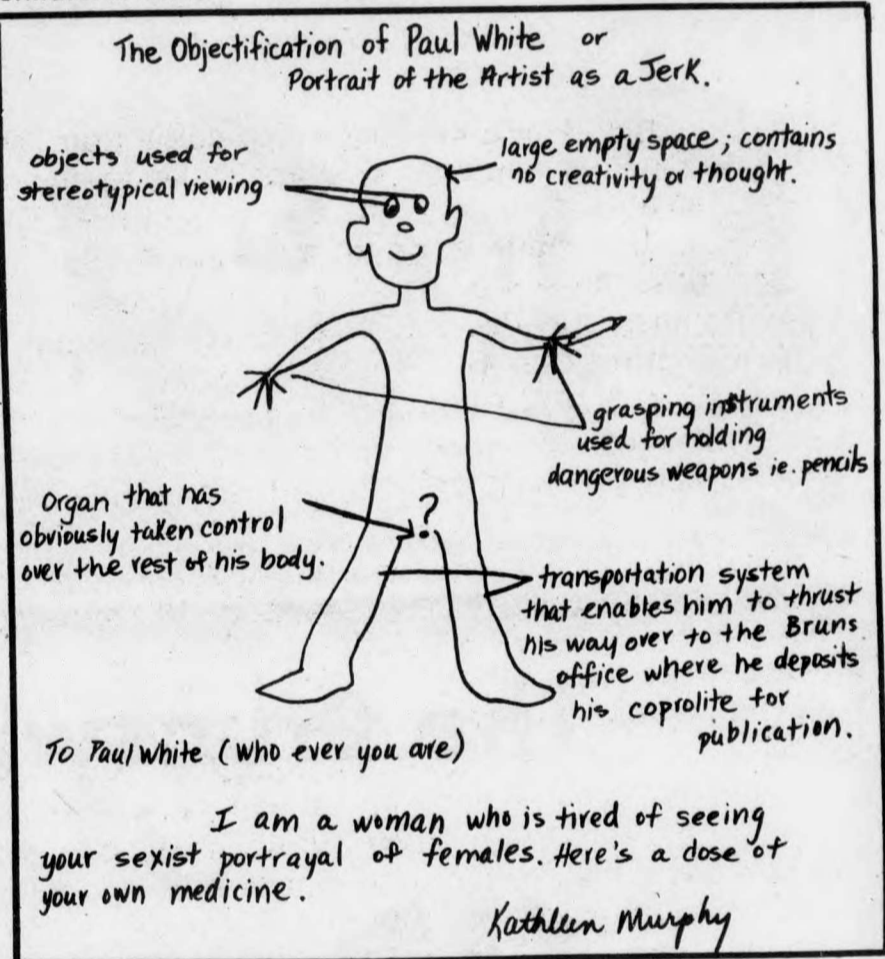 The Objectification of Paul White or
Portrait of the Artist as a Jerk.
objects used for
stereotypical viewing
large empty space; contains
no creativity or thought.
grasping instruments
used for holding
dangerous weapons ie. pencils
Organ that has
obviously taken control
over the rest of his body.
?
transportation system
that enables him to thrust
his way over to the Bruns
office where he deposits
his coprolite for
publication.
To Paul White (who ever you are)
I am a woman who is tired of seeing
your sexist portrayal of females. Here's a dose of
your own medicine.
Kathleen Murphy